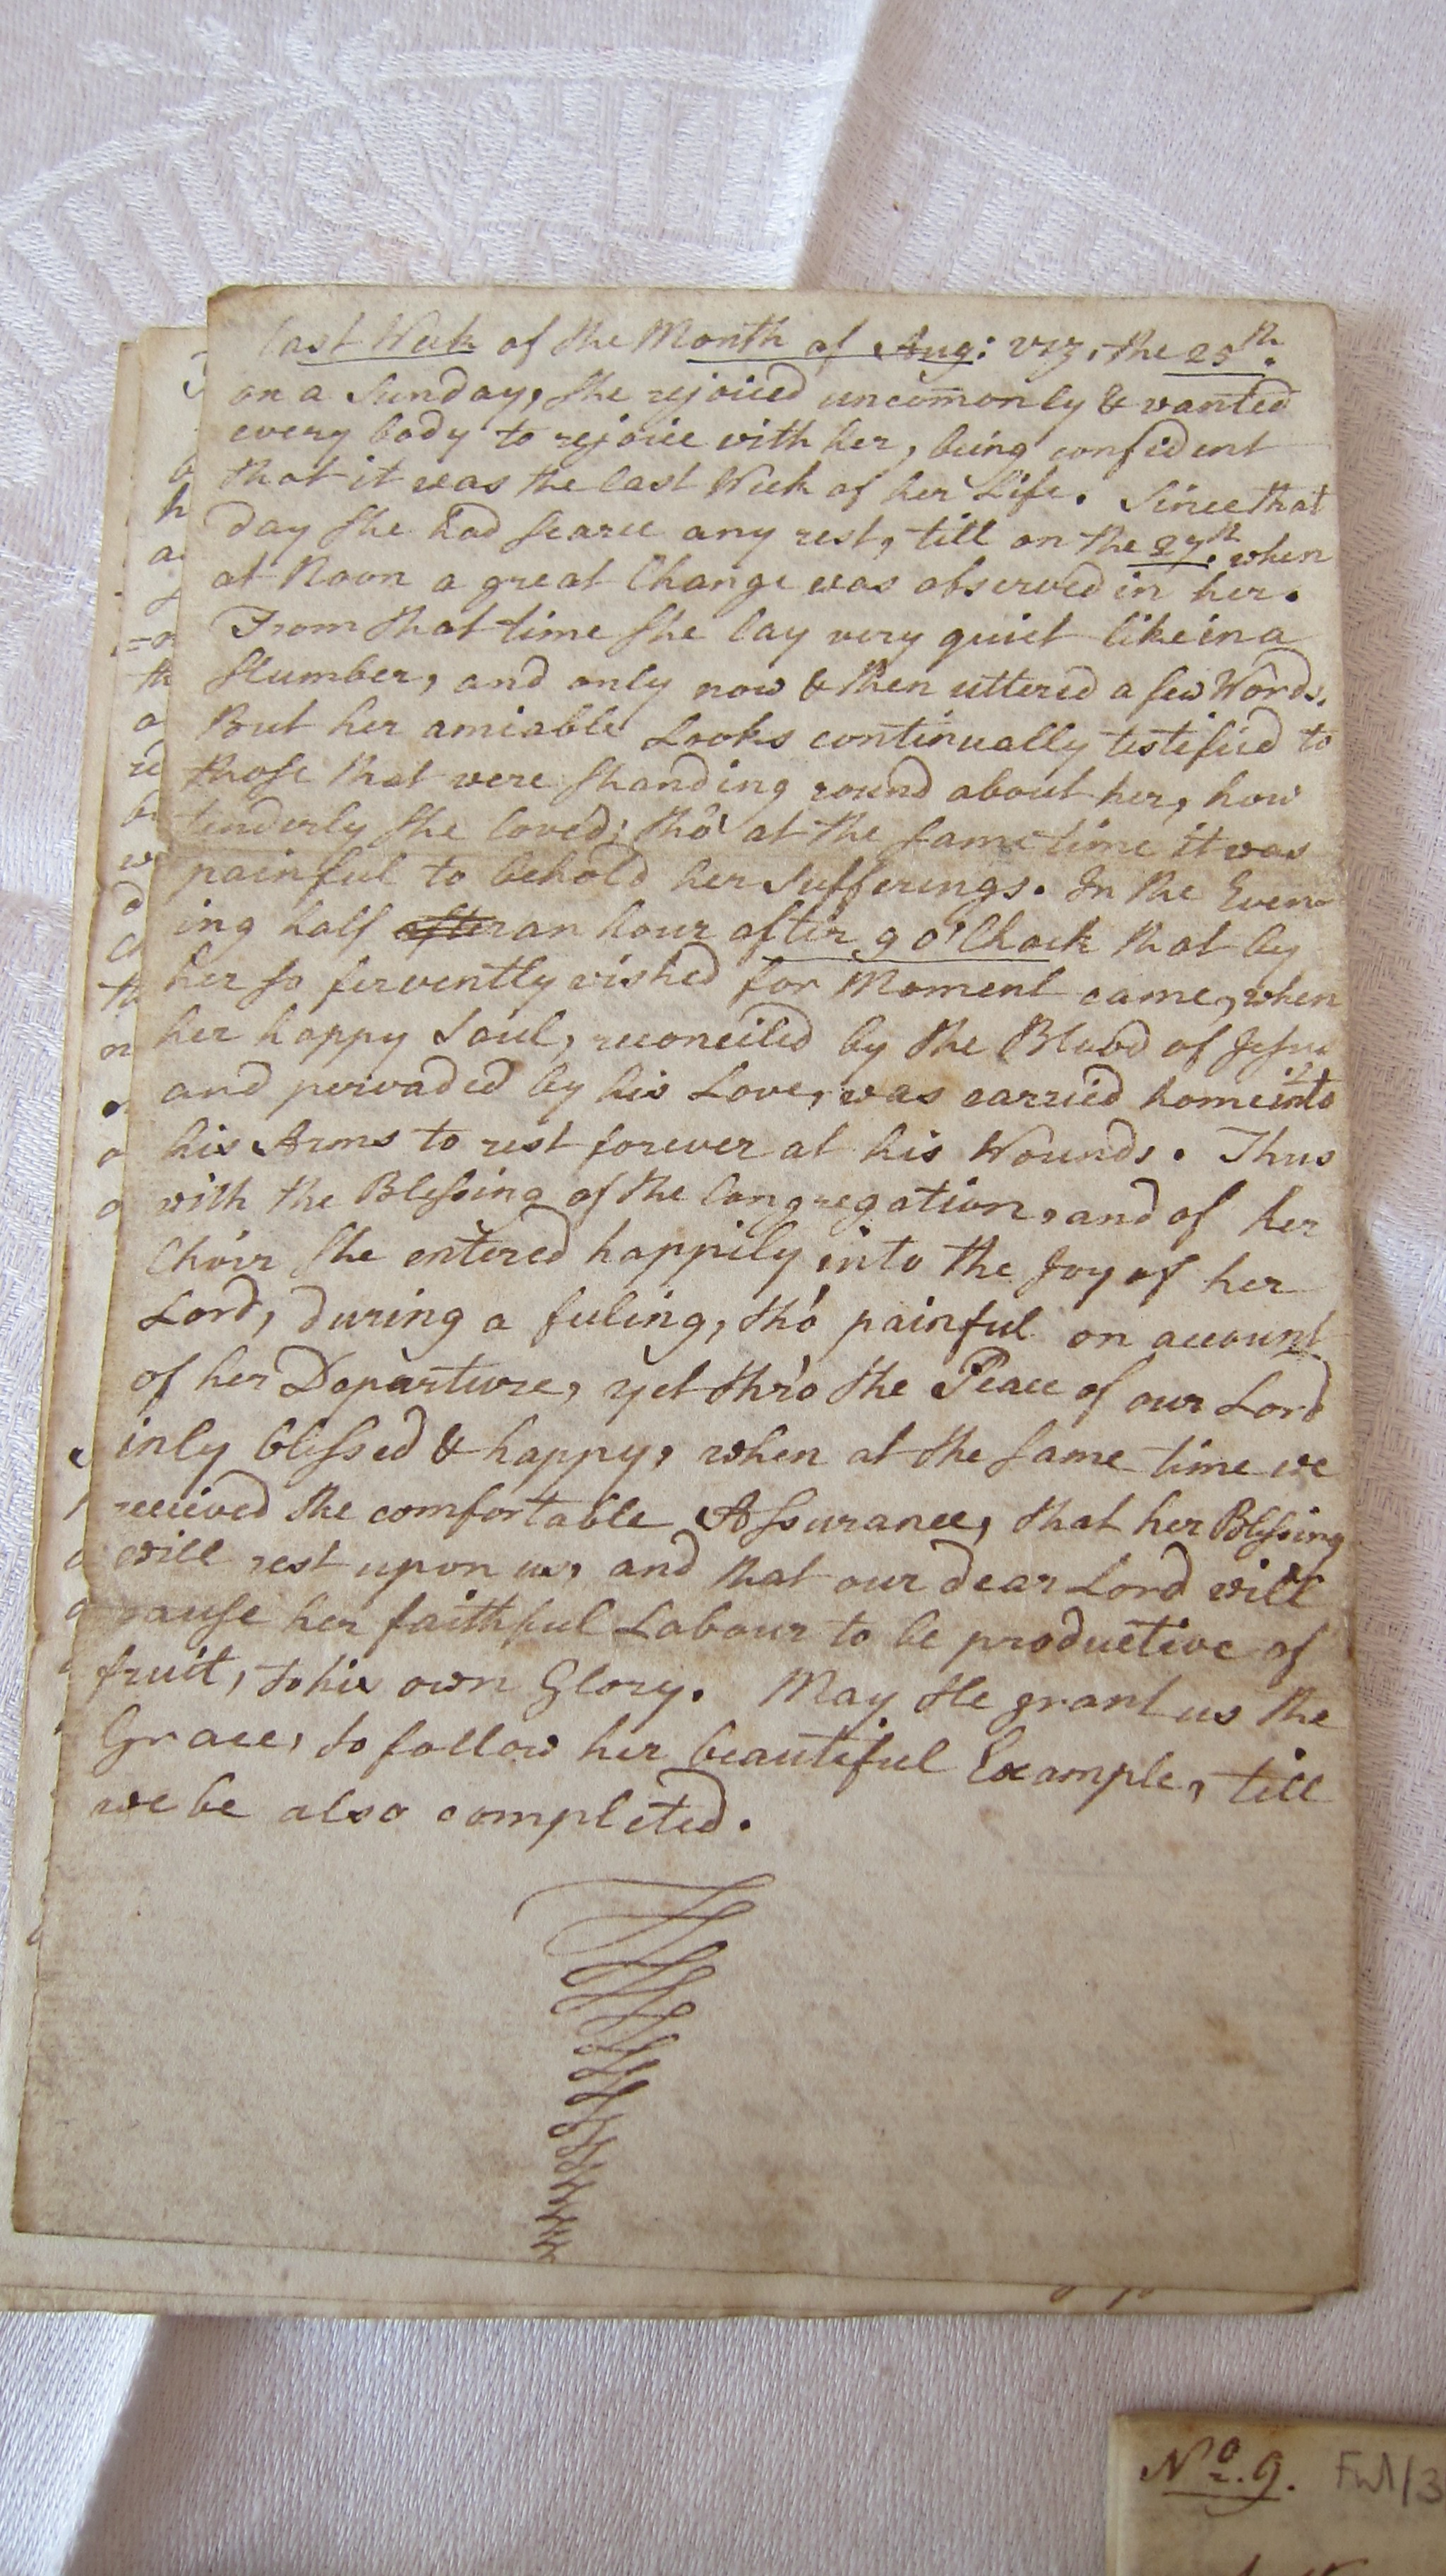 last Week of the Month of Aug: viz, the 25th.
on a Sunday, she rejoiced uncom̄only & wanted
every body to rejoice with her, being confident
that it was the last Week of her Life. Since that
day she had scarce any rest, till on the 27th. when
at Noon a great Change was observed in her.
From that time she lay very quiet like in a
slumber, and only now & then uttered a few Words.
But her amiable Looks continually testified to
those that were standing round about her, how
tenderly she loved; tho' at the same time it was
painful to behold her Sufferings. In the Even-
ing half after an hour after 9 o'Clock that by
her so fervently wished for Moment came, when
her happy Soul, reconciled by the Blood of Jesus
and pervaded by his Love, was carried home into
his Arms to rest forever at his Wounds. Thus
with the Blessing of the Congregation, and of her
Choir she entered happily into the Joy of her
Lord, during a feeling, tho' painful on account
of her Departure, yet thro' the Peace of our Lord
inly blessed & happy, when at the same time we
received the comfortable Assurance, that her Blessing
will rest upon us, and that our dear Lord will
cause her faithful Labour to be productive of
fruit, to his own Glory. May He grant us the
Grace, to follow her beautiful Example, till
we be also completed.
No. 9.